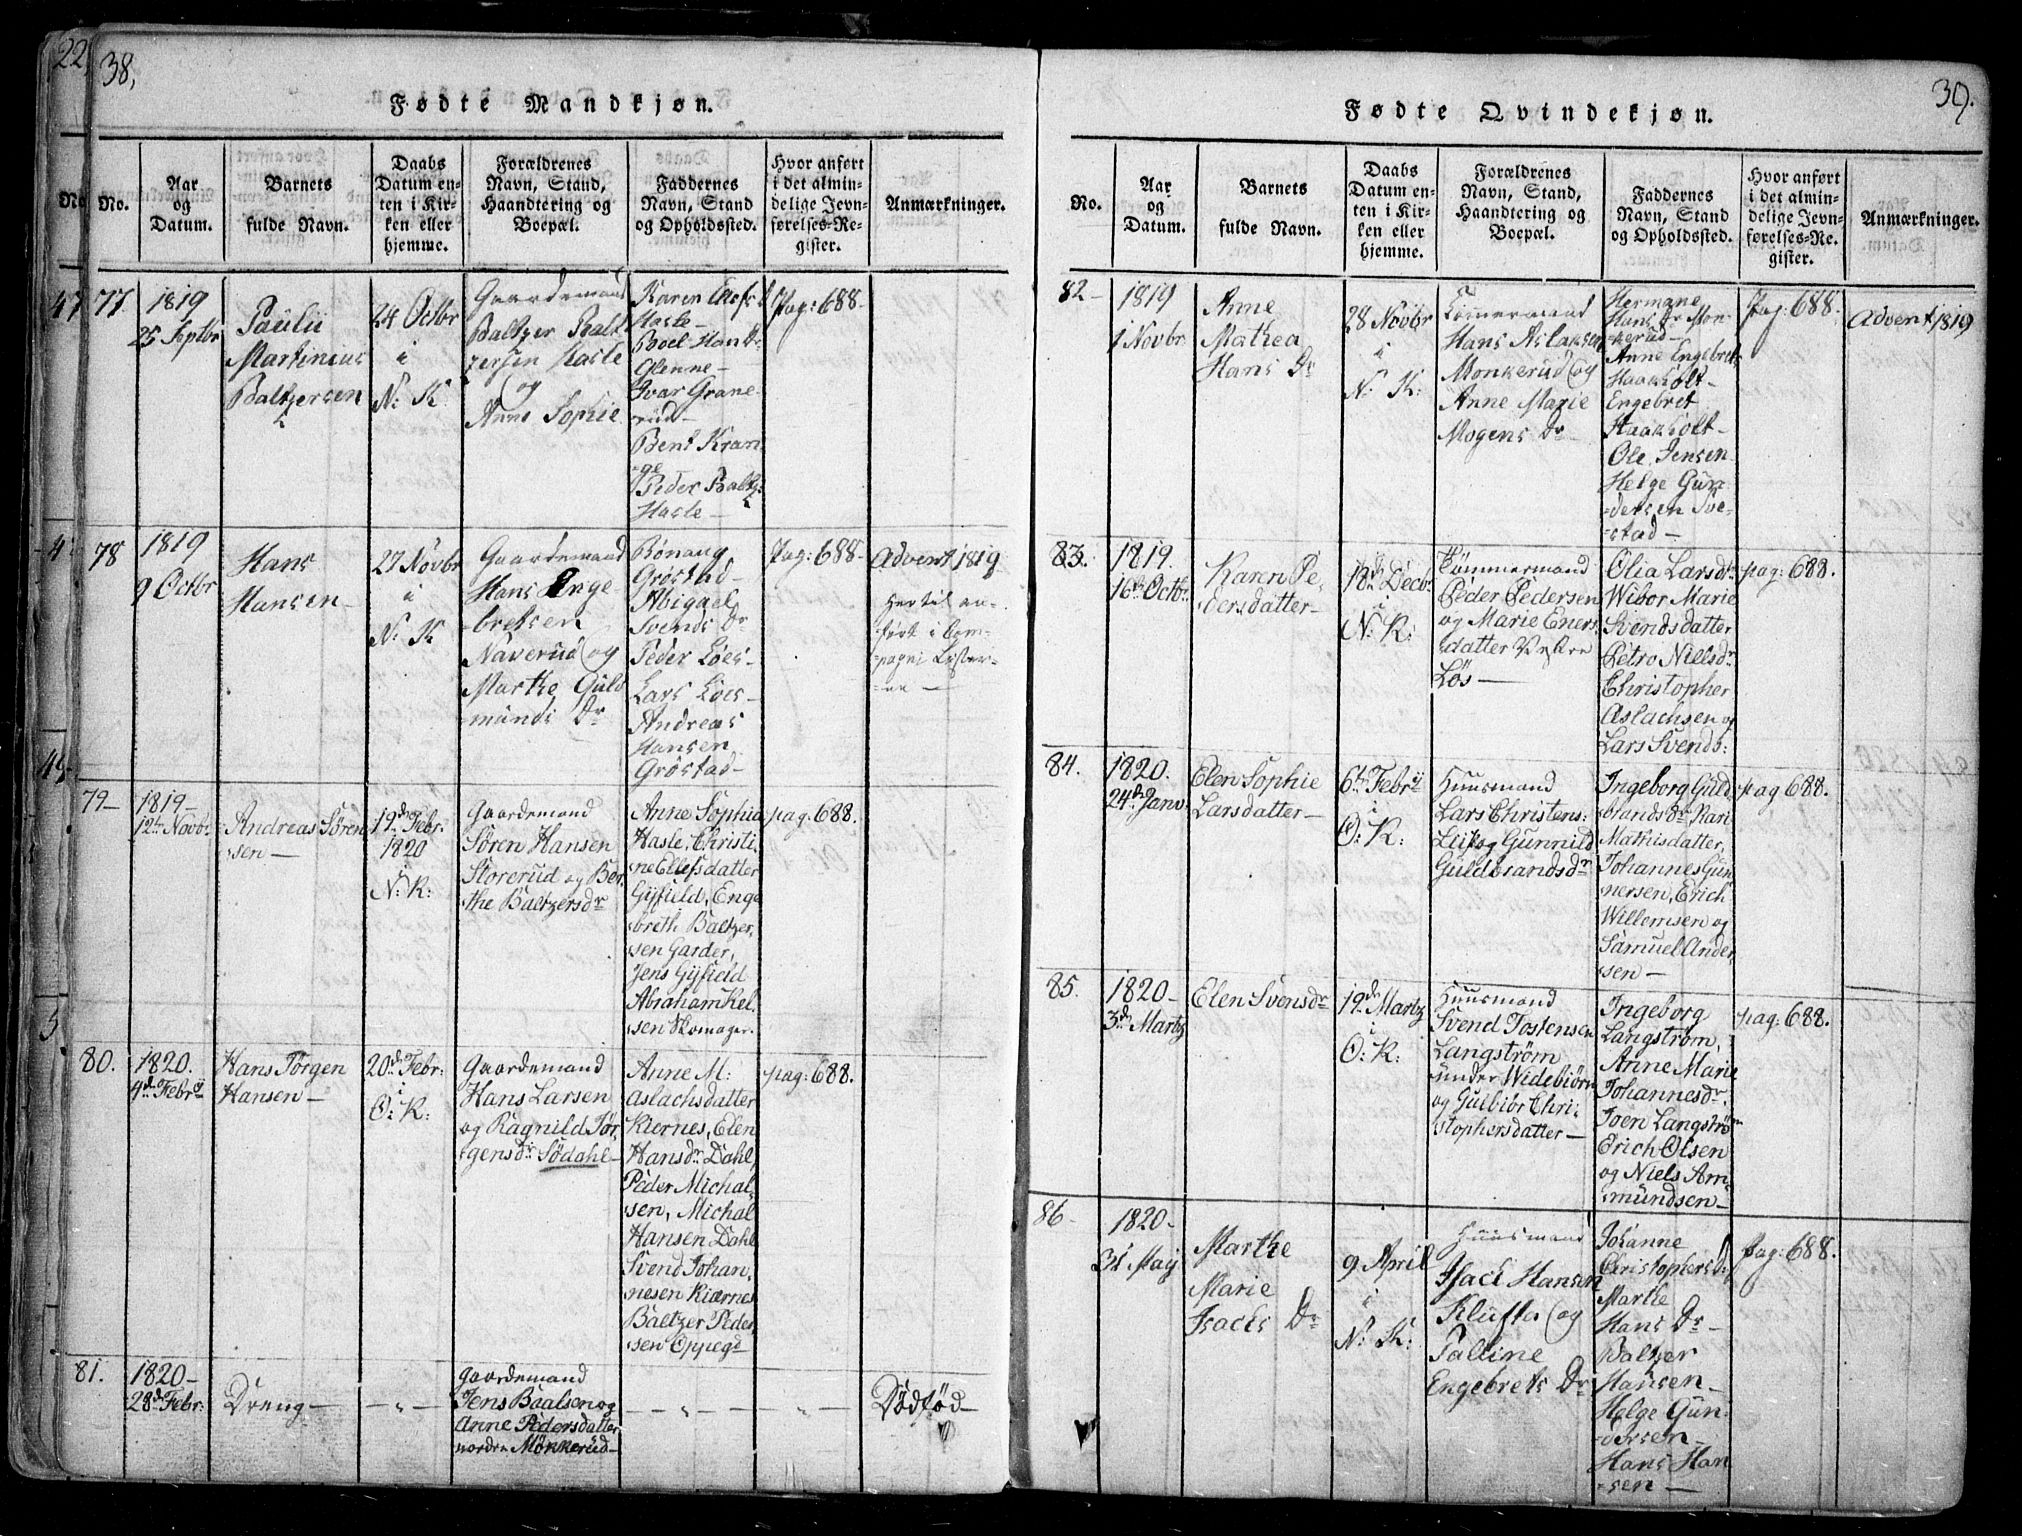 22,
38,
Fødte Mandkjøn.
No.
No.
Aar
og
Datum.
Barnets
fulde Navn.
Daabs
Datum en-
ten i Kir-
ken eller
hjemme.
Forældrenes
Navn, Stand,
Haandtering og
Boepæl.
Faddernes
Navn, Stand
og Opholdssted.
Hvor anført
i det almin-
delige Jevn-
førelses-Re-
gister.
Anmærkninger.
47
77
1819
25 Septbr
Paulii
Martinius
Baltzersen
24 Octbr
i
N: K
Gaardemand
Baltzer Balt
zersen Hasle
og
Anne Sophie
Karen
Hasle-
Boel Hans Dr
Glenne-
Ivar Grane
rud-
Bent Kran
ge
Peder Baltz:
Hasle-
Pag: 688.
78
1819
9 Octbr
Hans
Hansen-
27 Novbr
i
N: K
Gaardemand
Hans Enge-
bretsen
Naverud og
Marthe Guld
munds Dr
Rønaug
Grøstad-
Abigael
Svends Dr
Peder Løes-
Lars Løes-
Andreas
Hansen
Grøstad-
Pag: 688-
Advent 1819
Hertil an-
ført i Com-
pagni Lister-
ne-
79-
1819-
12te Novbr.
Andreas Sören
sen-
19de Febr.
1820
i
N: K:
Gaardemand
Søren Hansen
Storerud og Ber
the Baltzersdr
Anne Sophia
Hasle, Christi
ne Ellefsdatter
Gyfield, Enge
breth Baltzer
sen Garder,
Jens Gyfield
Abraham Kel
sen Skomager.
pag: 688.
80.
1820.
4de Febrii
Hans Jörgen
Hansen-
20de Febr:
i
O: K:
Gaardemand
Hans Larsen
og Ragnild Jør
gensdr Södahl-
Anne M:
Aslachsdatter
Kiernes, Elen
Hansdr Dahl,
Peder Michal
sen, Michal
Hansen Dahl
Svend Johan
nesen Kiærnes
Baltzer Peder
sen Oppegd
pag: 688.
81.
1820-
28de Febr:
Dreng-
Gaardemand
Jens Baalsen og
Anne Pedersdatter
nordre Mökkerud-
Dödföd-
39.
Fødte Qvindekjøn.
No.
Aar
og
Datum.
Barnets
fulde Navn.
Daabs
Datum en-
ten i Kir-
ken eller
hjemme.
Forældrenes
Navn, Stand,
Haandtering og
Boepæl.
Faddernes
Navn, Stand
og Opholdssted.
Hvor anført
i det almin-
delige Jevn-
førelses-Re-
gister.
Anmærkninger.
82-
1819
1 Novbr
Anne
Mathea
Hans Dr
28 Novbr
i
N: K:
Hans Aslaksen
Monkerud og
Anne Marie
Mogens Dr-
Hermane
Hans Dr Mon-
kerud-
Anne Engebrets
Haakholt-
Engebret
Haakholt-
Ole Jensen
Helge Gun
dersen Sve-
stad-
Pag: 688.
Advent 1819
83.
1819.
16de Octbr.
Karen Pe
dersdatter-
18de Decbr
i
N: K:
Tömmermand
Peder Pedersen
og Marie Eners
datter Vestre
Lös-
Olia Larsdr
Wibor Marie
Svendsdatter
Petro Nielsdr
Christopher
Aslachsen og
Lars Svends:
pag: 688.
84.
1820.
24de Janv.
Elen Sophie
Larsdatter-
6te Febrii
i
O: K:
Huusmand
Lars Christens:
og Gunnild
Guldbrandsdr
Ingeborg Guld
brandsdr, Kari
Mathisdatter,
Johannes Gun
nersen, Erich
Willemsen og
Samuel Ander
sen-
pag 688.
85.
1820-
3de Martz
Elen Svensdr
19de Martz
i
O: K:
Huusmand
Svend Tostensen
Langström
under Widebiörn
og Gulbiör Chri
stophersdatter-
Ingeborg
Langström,
Anne Marie
Johannesdr,
Joen Langström
Erich Olsen
og Niels Am
mundsen-
pag: 688.
86-
1820-
31 May
Marthe
Marie
Isachs Dr
9 April
i
N: K:
Huusmand
Isach Hansen
Klufta og
Palline
Engebrets Dr
Johanne
Christophersdr
Marthe
Hans Dr-
Baltzer
Hansen-
Helge Gun-
dersen-
Hans Han
sen-
Pag: 688.